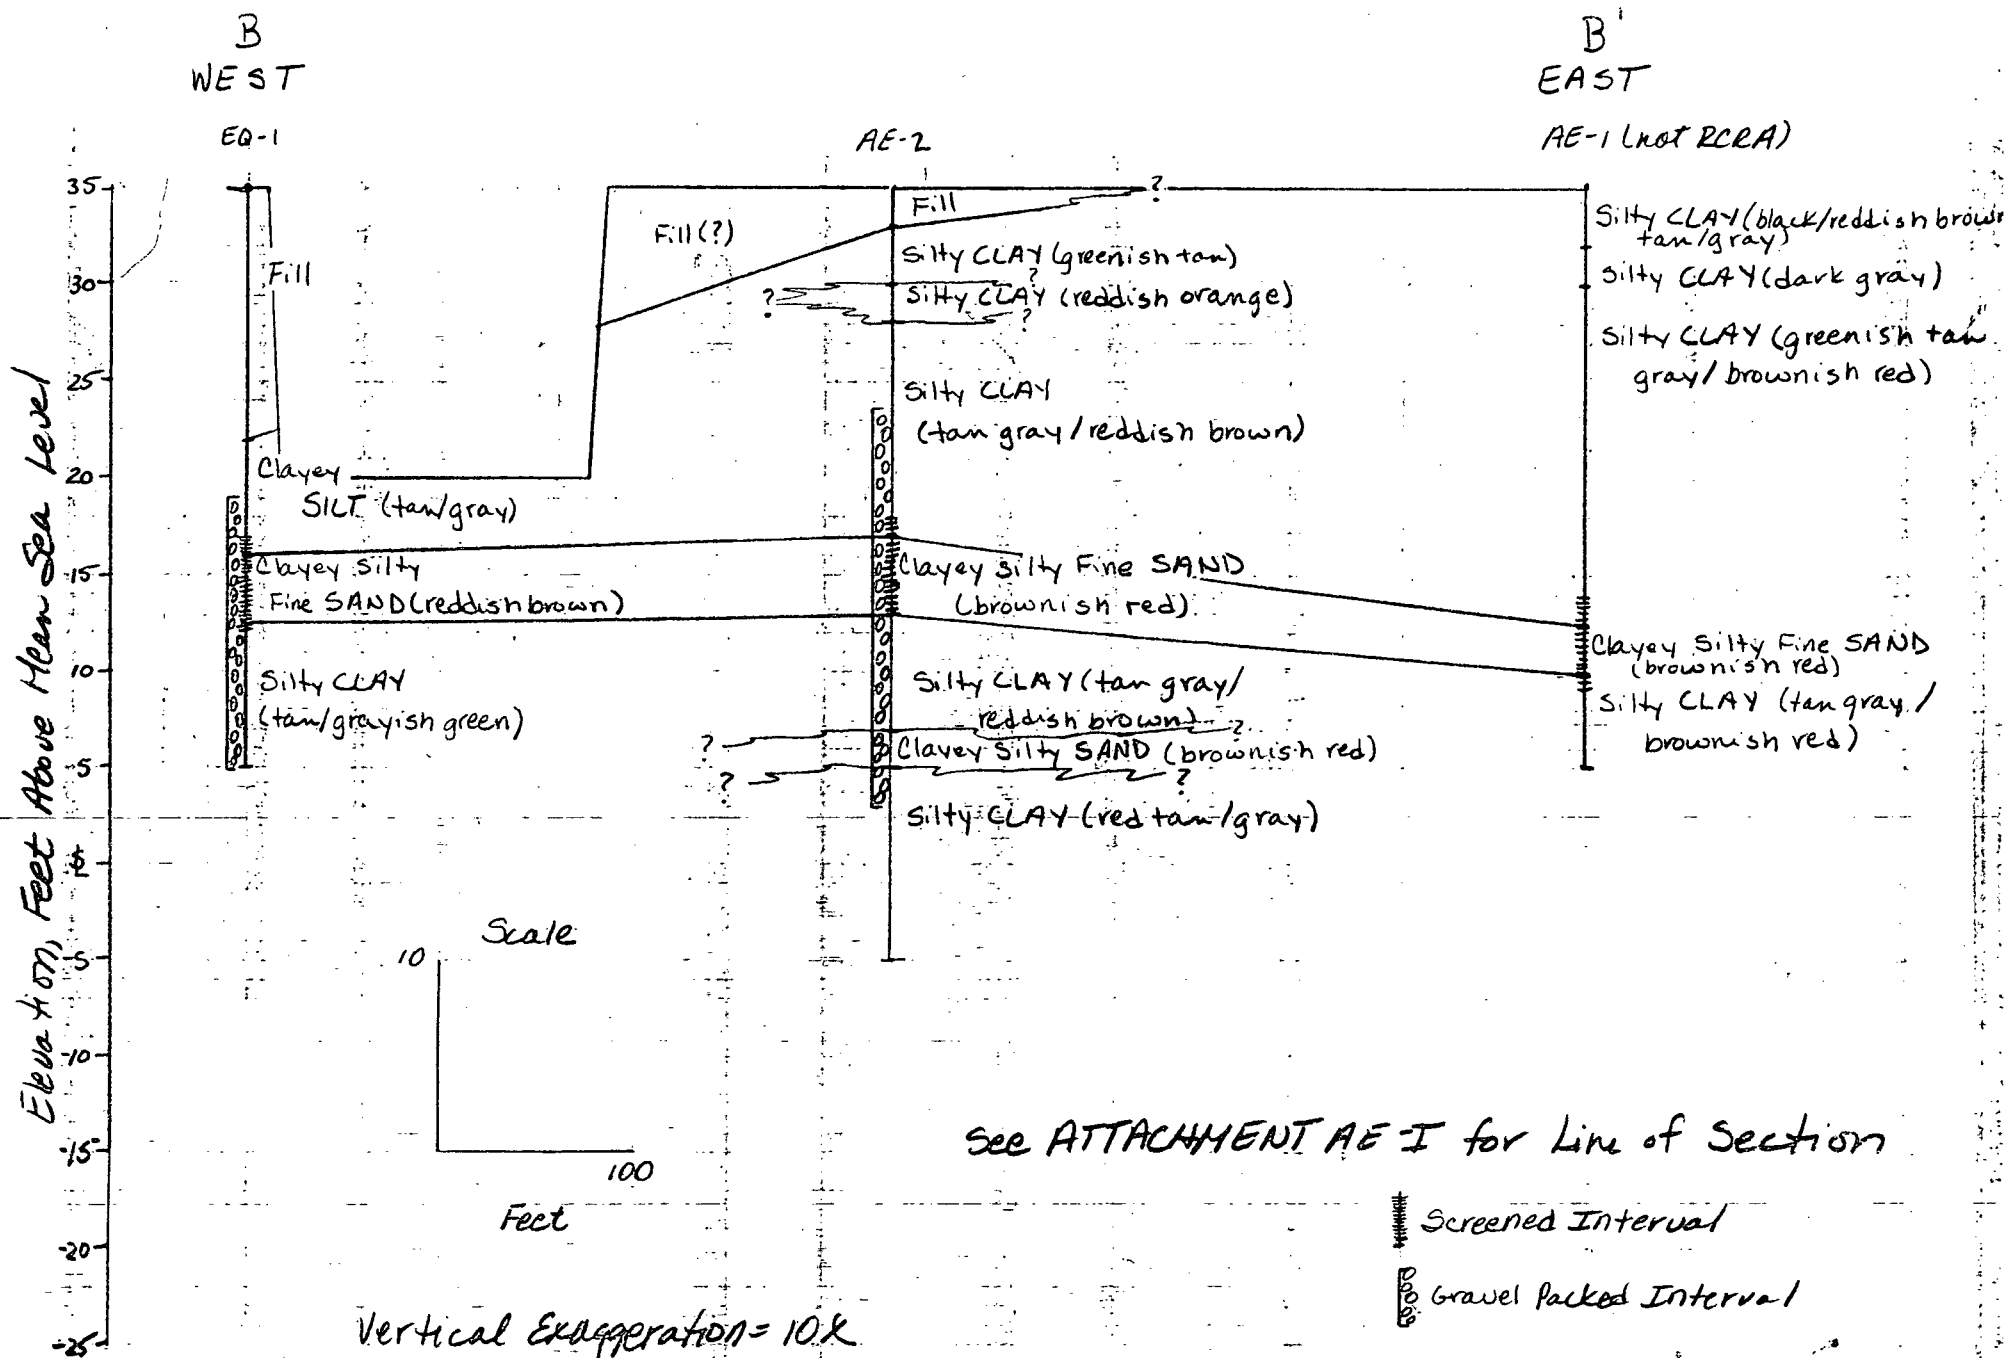 B
WEST
B'
EAST
EQ-1
AE-2
AE-1 (not RCRA)
Elevation, Feet Above Mean Sea Level
35
30
25
20
15
10
5
-5
-10
-15
-20
-25
Fill
Clayey
SILT (tan/gray)
Clayey Silty
Fine SAND (reddish brown)
Silty CLAY
(tan/grayish green)
Fill (?)
Fill
?
Silty CLAY (greenish tan)
?
?
Silty CLAY (reddish orange)
?
Silty CLAY
(tan gray/reddish brown)
Clayey Silty Fine SAND
(brownish red)
Silty CLAY (tan gray/
reddish brown)
?
?
Clayey Silty SAND (brownish red)
?
?
Silty CLAY (red tan/gray)
Silty CLAY (black/reddish brown
tan/gray)
Silty CLAY (dark gray)
Silty CLAY (greenish tan
gray/brownish red)
Clayey Silty Fine SAND
(brownish red)
Silty CLAY (tan gray/
brownish red)
Scale
10
100
Feet
See ATTACHMENT AE-I for Line of Section
Screened Interval
Gravel Packed Interval
Vertical Exaggeration = 10X